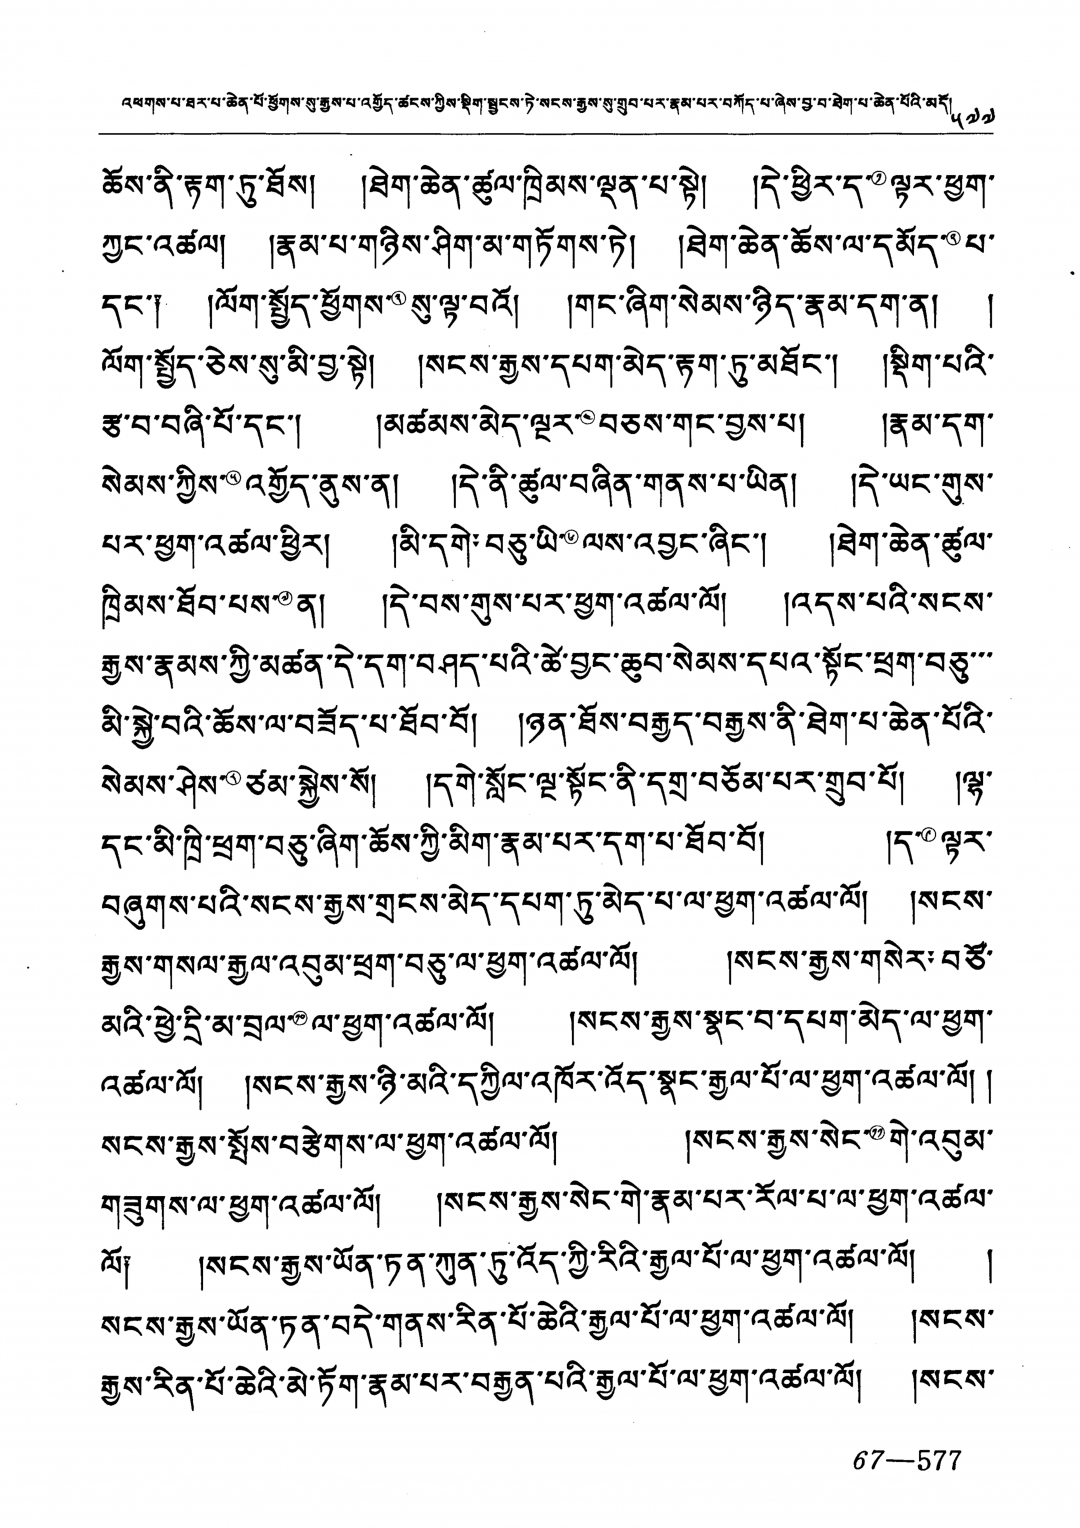 འཕགས་པ་ཐར་པ་ཆེན་པོ་ཕྱོགས་སུ་རྒྱས་པ་འགྱོད་ཚངས་ཀྱིས་སྡིག་སྦྱངས་ཏེ་སངས་རྒྱས་སུ་གྲུབ་པར་རྣམ་པར་བཀོད་པ་ཞེས་བྱ་བ་ཐེག་པ་ཆེན་པོའི་མདོ། ༥༧༧
ཆོས་ནི་རྟག་ཏུ་ཐོས། །ཐེག་ཆེན་ཚུལ་ཁྲིམས་ལྡན་པ་སྟེ། །དེ་ཕྱིར་ད་②ལྟར་ཕྱག་
ཀྱང་འཚལ། །རྣམ་པ་གཉིས་ཤིག་མ་གཏོགས་ཏེ། །ཐེག་ཆེན་ཆོས་ལ་དམོད་③པ་
དང་༑ །ལོག་སྤྱོད་ཕྱོགས་①སུ་ལྟ་བའོ། །གང་ཞིག་སེམས་ཉིད་རྣམ་དག་ན། །
ལོག་སྤྱོད་ཅེས་སུ་མི་བྱ་སྟེ། །སངས་རྒྱས་དཔག་མེད་རྟག་ཏུ་མཐོང་། །སྡིག་པའི་
རྩ་བ་བཞི་པོ་དང་། །མཚམས་མེད་ལྔར་④བཅས་གང་བྱས་པ། །རྣམ་དག་
སེམས་ཀྱིས་⑤འགྱོད་ནུས་ན། །དེ་ནི་ཚུལ་བཞིན་གནས་པ་ཡིན། །དེ་ཡང་གུས་
པར་ཕྱག་འཚལ་ཕྱིར། །མི་དགེ་བཅུ་ཡི་⑥ལས་འབྱང་ཞིང་། །ཐེག་ཆེན་ཚུལ་
ཁྲིམས་ཐོབ་པས་⑦ན། །དེ་བས་གུས་པར་ཕྱག་འཚལ་ལོ། །འདས་པའི་སངས་
རྒྱས་རྣམས་ཀྱི་མཚན་དེ་དག་བཤད་པའི་ཚེ་བྱང་ཆུབ་སེམས་དཔའ་སྟོང་ཕྲག་བཅུ་་་
མི་སྐྱེ་བའི་ཆོས་ལ་བཟོད་པ་ཐོབ་བོ། །ཉན་ཐོས་བརྒྱད་བརྒྱས་ནི་ཐེག་པ་ཆེན་པོའི་
སེམས་ཤེས་⑧ཙམ་སྐྱེས་སོ། །དགེ་སློང་ལྔ་སྟོང་ནི་དགྲ་བཅོམ་པར་གྲུབ་པོ། །ལྷ་
དང་མི་ཁྲི་ཕྲག་བཅུ་ཞིག་ཆོས་ཀྱི་མིག་རྣམ་པར་དག་པ་ཐོབ་བོ། །ད་⑨ལྟར་
བཞུགས་པའི་སངས་རྒྱས་གྲངས་མེད་དཔག་ཏུ་མེད་པ་ལ་ཕྱག་འཚལ་ལོ། །སངས་
རྒྱས་གསལ་རྒྱལ་འབུམ་ཕྲག་བཅུ་ལ་ཕྱག་འཚལ་ལོ། །སངས་རྒྱས་གསེར་བཙོ་
མའི་ཕྱེ་དྲི་མ་བྲལ་⑩ལ་ཕྱག་འཚལ་ལོ། །སངས་རྒྱས་སྣང་བ་དཔག་མེད་ལ་ཕྱག་
འཚལ་ལོ། །སངས་རྒྱས་ཉི་མའི་དཀྱིལ་འཁོར་འོད་སྣང་རྒྱལ་པོ་ལ་ཕྱག་འཚལ་ལོ། །
སངས་རྒྱས་སྤོས་བརྩེགས་ལ་ཕྱག་འཚལ་ལོ། །སངས་རྒྱས་སེང་⑪གེ་འབུམ་
གཟུགས་ལ་ཕྱག་འཚལ་ལོ། །སངས་རྒྱས་སེང་གེ་རྣམ་པར་རོལ་པ་ལ་ཕྱག་འཚལ་
ལོ༑ །སངས་རྒྱས་ཡོན་ཏན་ཀུན་ཏུ་འོད་ཀྱི་རིའི་རྒྱལ་པོ་ལ་ཕྱག་འཚལ་ལོ། །
སངས་རྒྱས་ཡོན་ཏན་བདེ་གནས་རིན་པོ་ཆེའི་རྒྱལ་པོ་ལ་ཕྱག་འཚལ་ལོ། །སངས་
རྒྱས་རིན་པོ་ཆེའི་མེ་ཏོག་རྣམ་པར་བརྒྱན་པའི་རྒྱལ་པོ་ལ་ཕྱག་འཚལ་ལོ། །སངས་
67—577